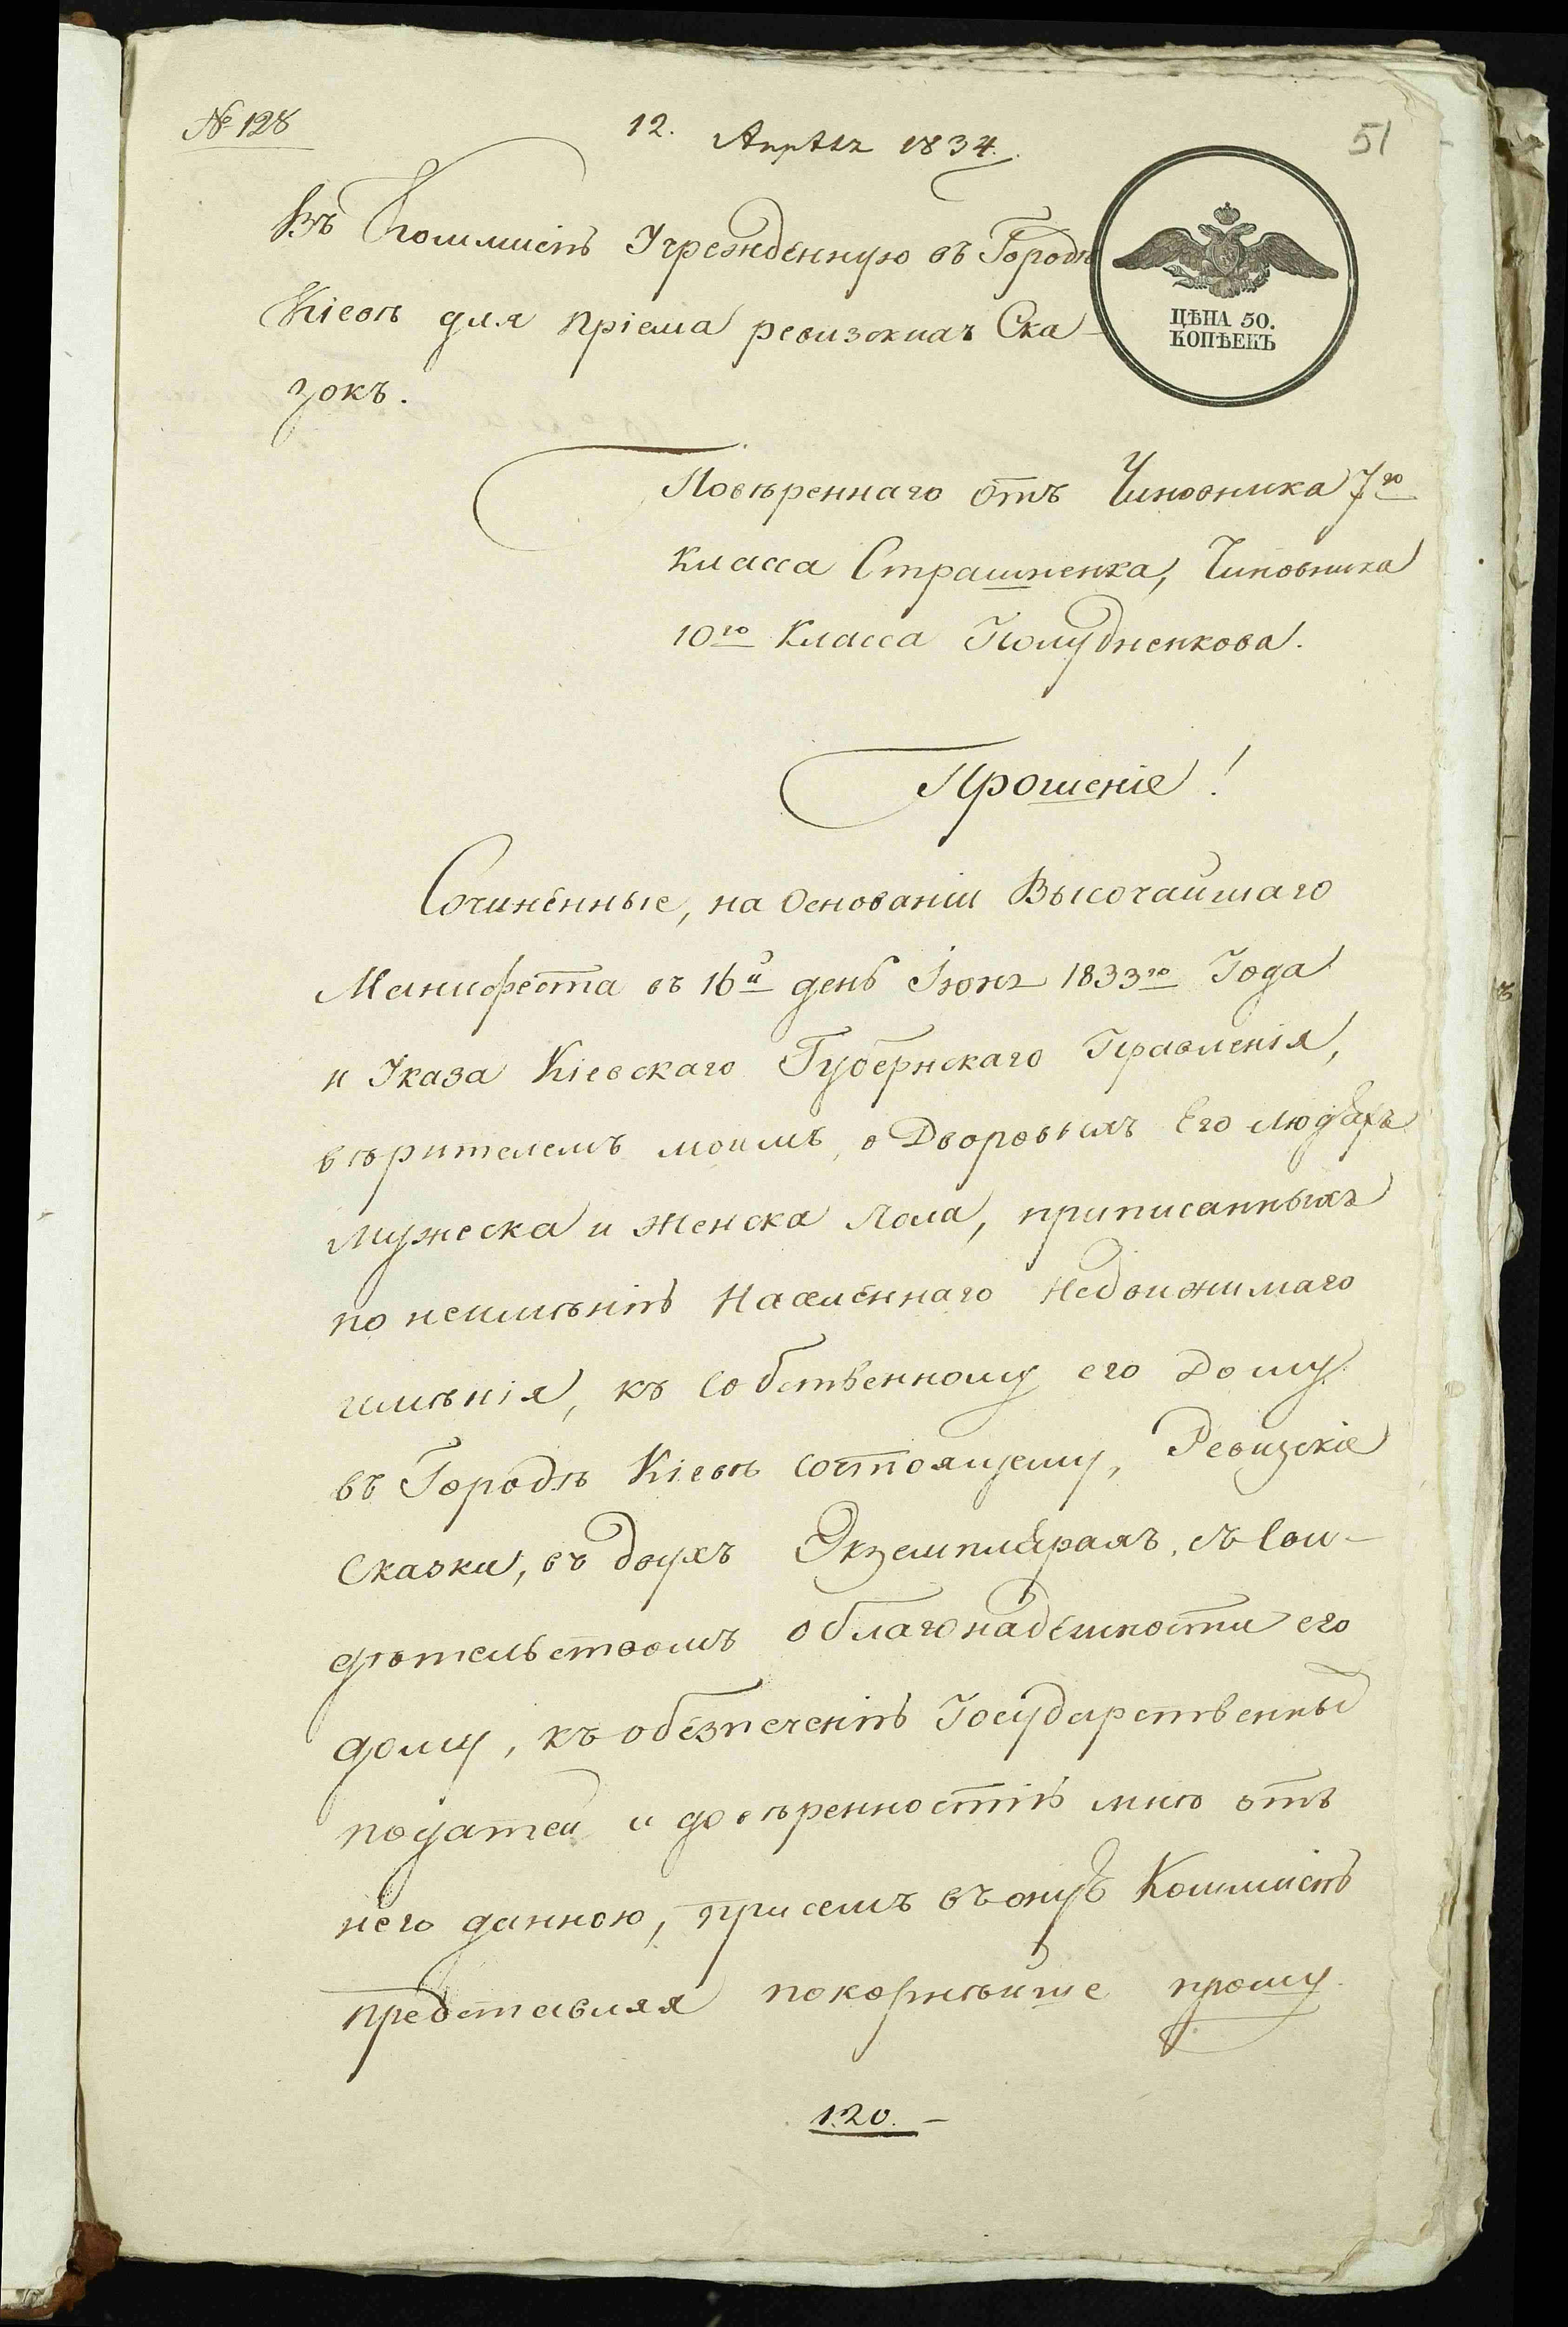 № 128
12. Апрѣля 1834.
51
Въ Коммисію Учрежденную въ Городѣ
Кіевѣ для пріема ревизскихъ Ска-
зокъ.
ЦѢНА 50.
КОПѢЕКЪ
Повѣреннаго отъ Чиновника 7го
класса Страшненка, Чиновника
10го Класса Полудненкова.
Прошеніе!
Сочиненные, на Основаніи Высочайшаго
Манифеста въ 16й день Іюня 1833го Года
и Указа Кіевскаго Губернскаго Правленія,
вѣрителемъ моимъ, о Дворовыхъ Его людяхъ
мужеска и женска пола, приписанныхъ
по неимѣнію Населеннаго Недвижимаго
имѣнія, къ собственному его Дому
въ Городѣ Кіевѣ состоящему, Ревизскіе
Сказки, въ двухъ Экземплярахъ, съ Сви-
дѣтельствомъ о благонадежности его
дому, къ обезпеченію Государственных
податей и довѣренностію мнѣ отъ
него данною, при семъ въ оную Коммисію
представляя покорнѣйше прошу
120. –